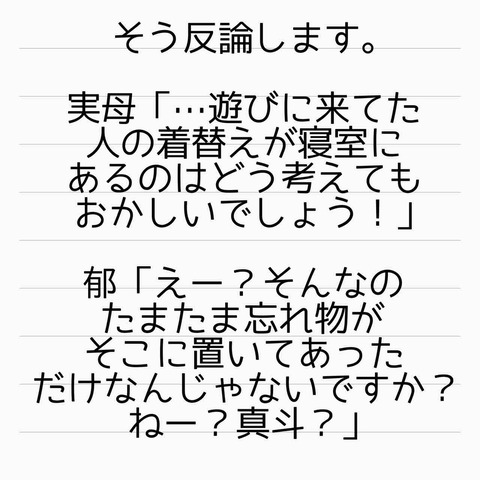 そう反論します。
実母「…遊びに来てた
人の着替えが寝室に
あるのはどう考えても
おかしいでしょう！」
郁「えー？そんなの
たまたま忘れ物が
そこに置いてあった
だけなんじゃないですか？
ねー？真斗？」